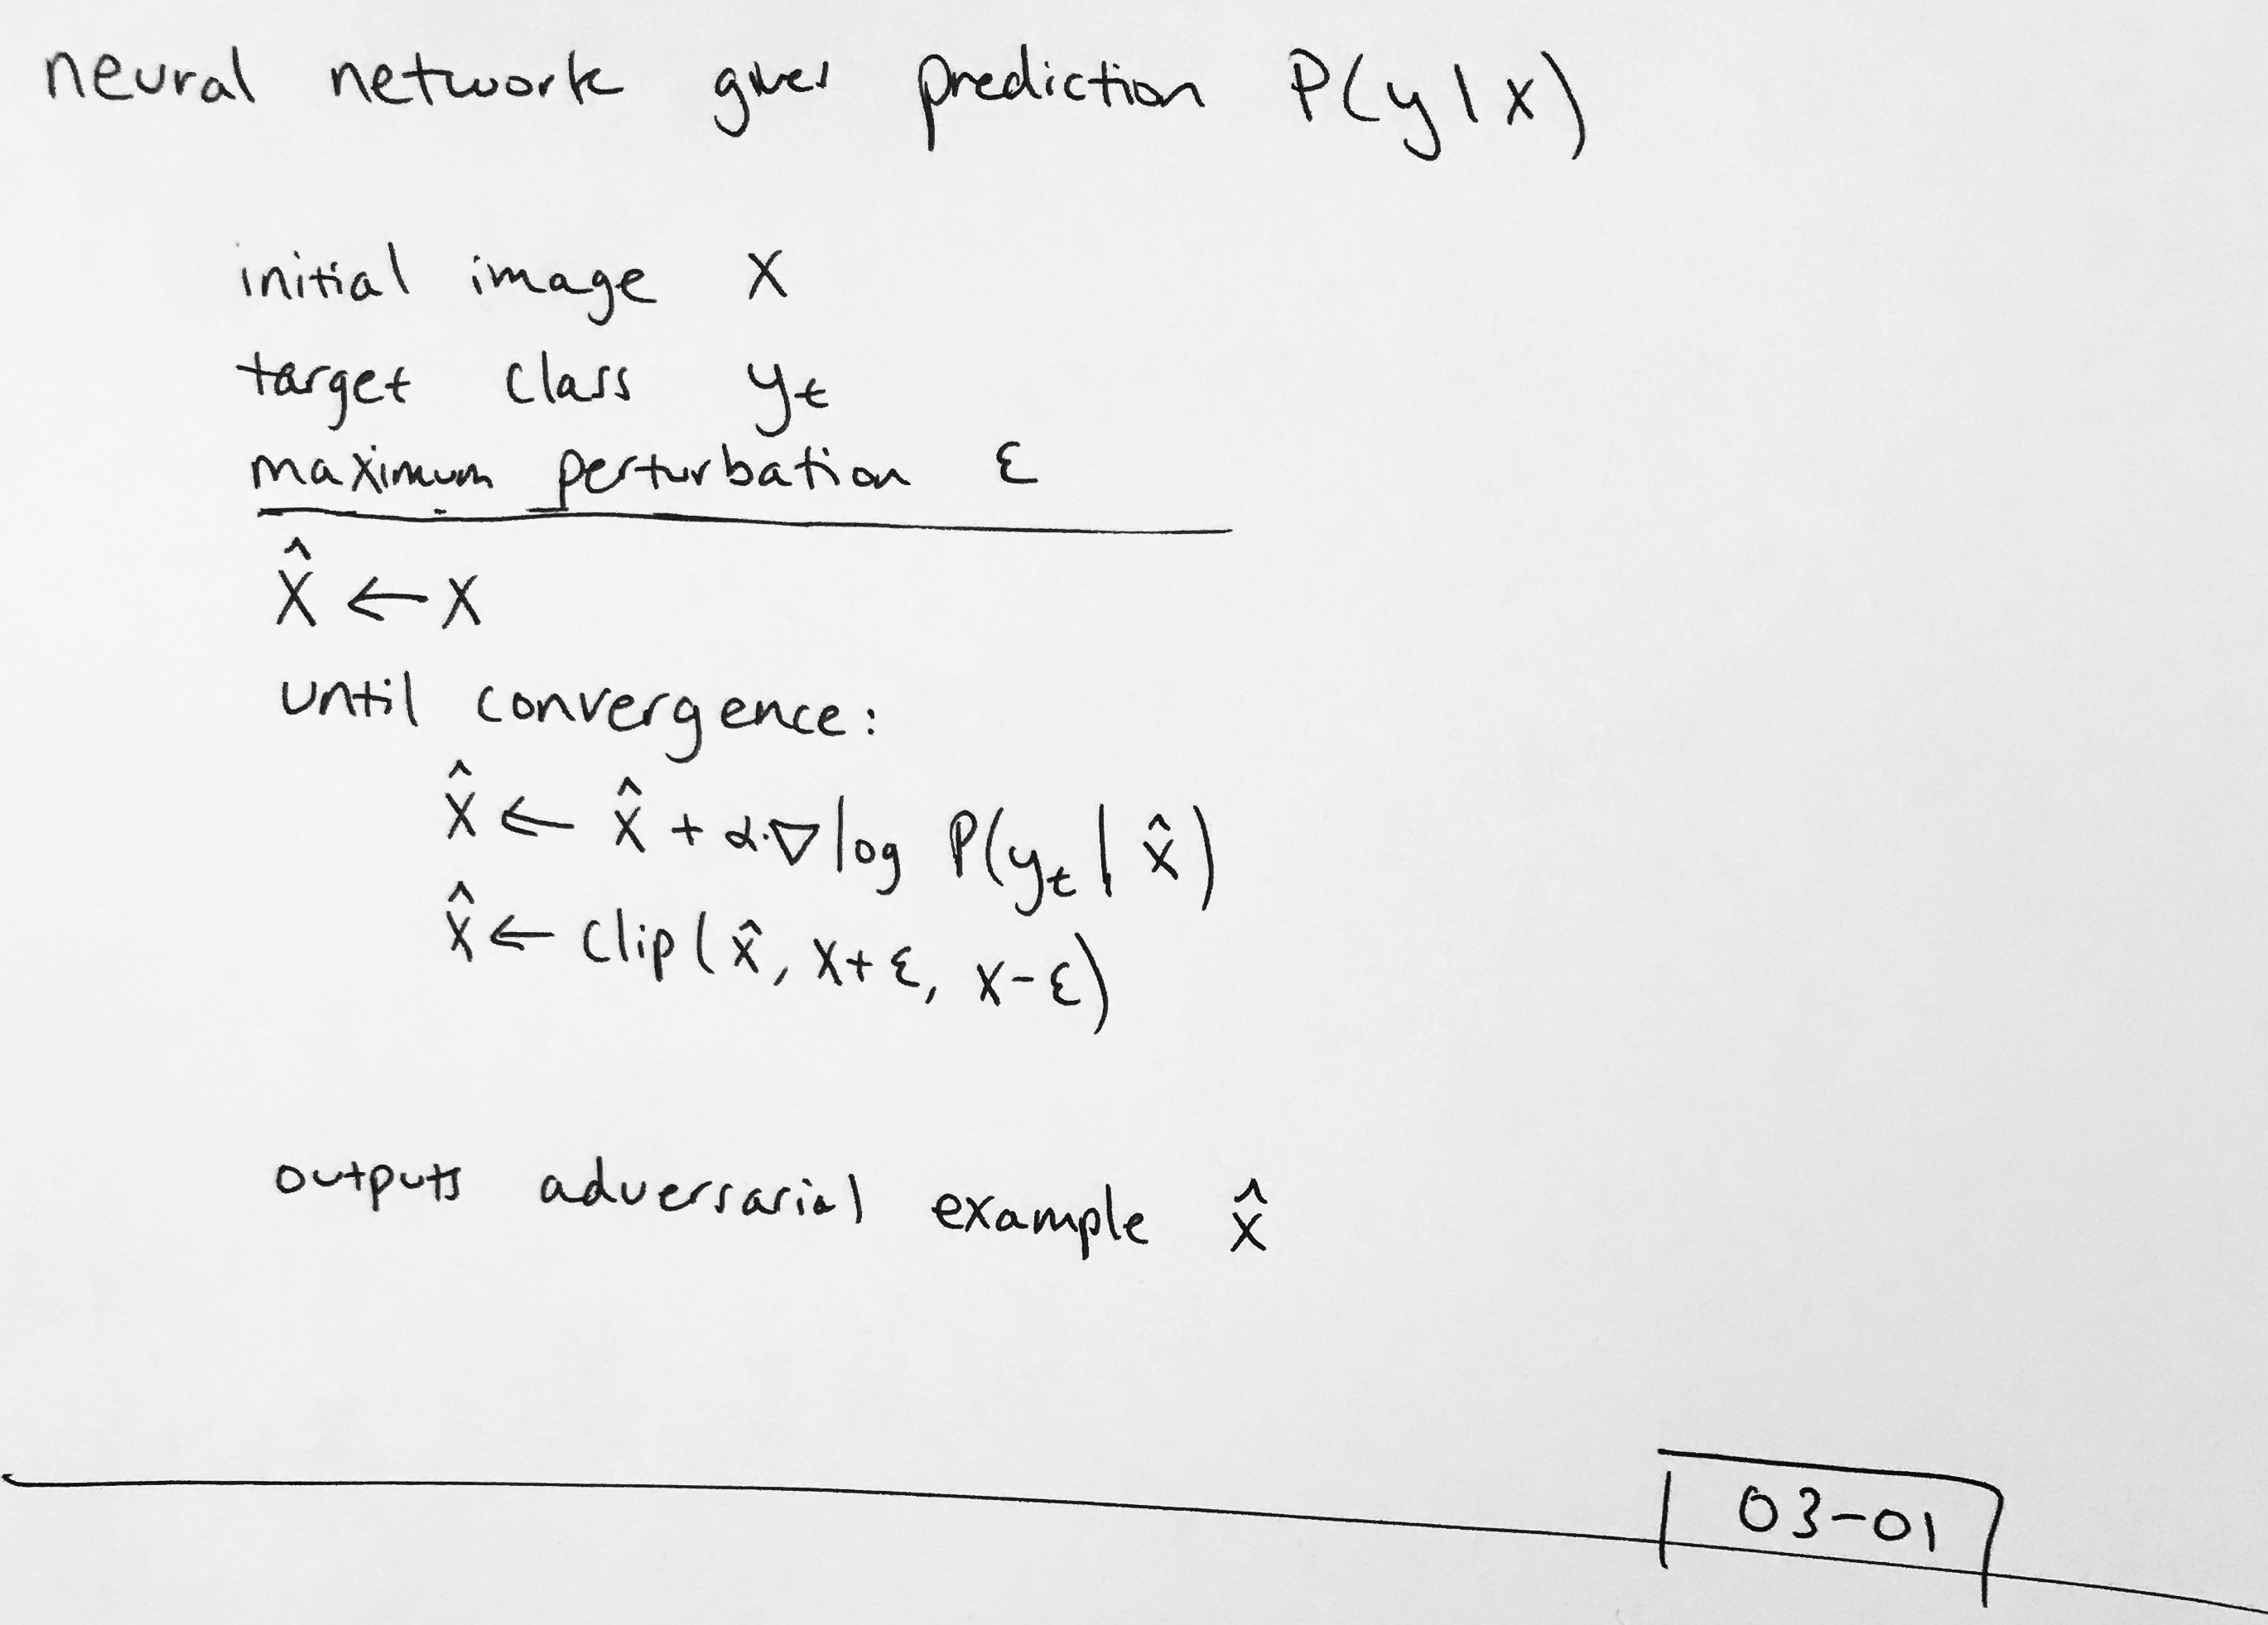 neural network gives prediction P(y|x)
initial image x
target class y_t
maximum perturbation ε
x̂ ← x
until convergence:
x̂ ← x̂ + α·∇ log P(y_t | x̂)
x̂ ← clip(x̂, x+ε, x-ε)
outputs adversarial example x̂
03-01